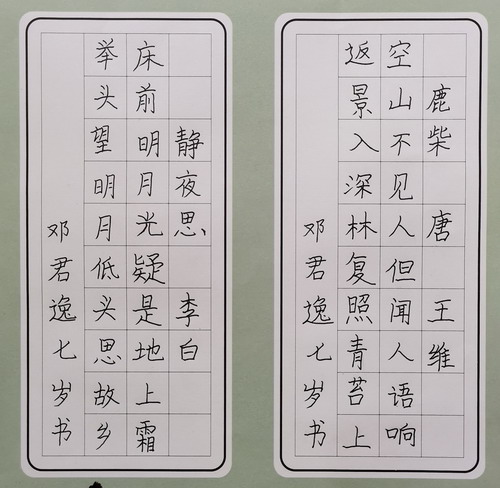 静夜思 李白
床前明月光疑是地上霜
举头望明月低头思故乡
邓君逸七岁书
鹿柴 唐 王维
空山不见人但闻人语响
返景入深林复照青苔上
邓君逸七岁书